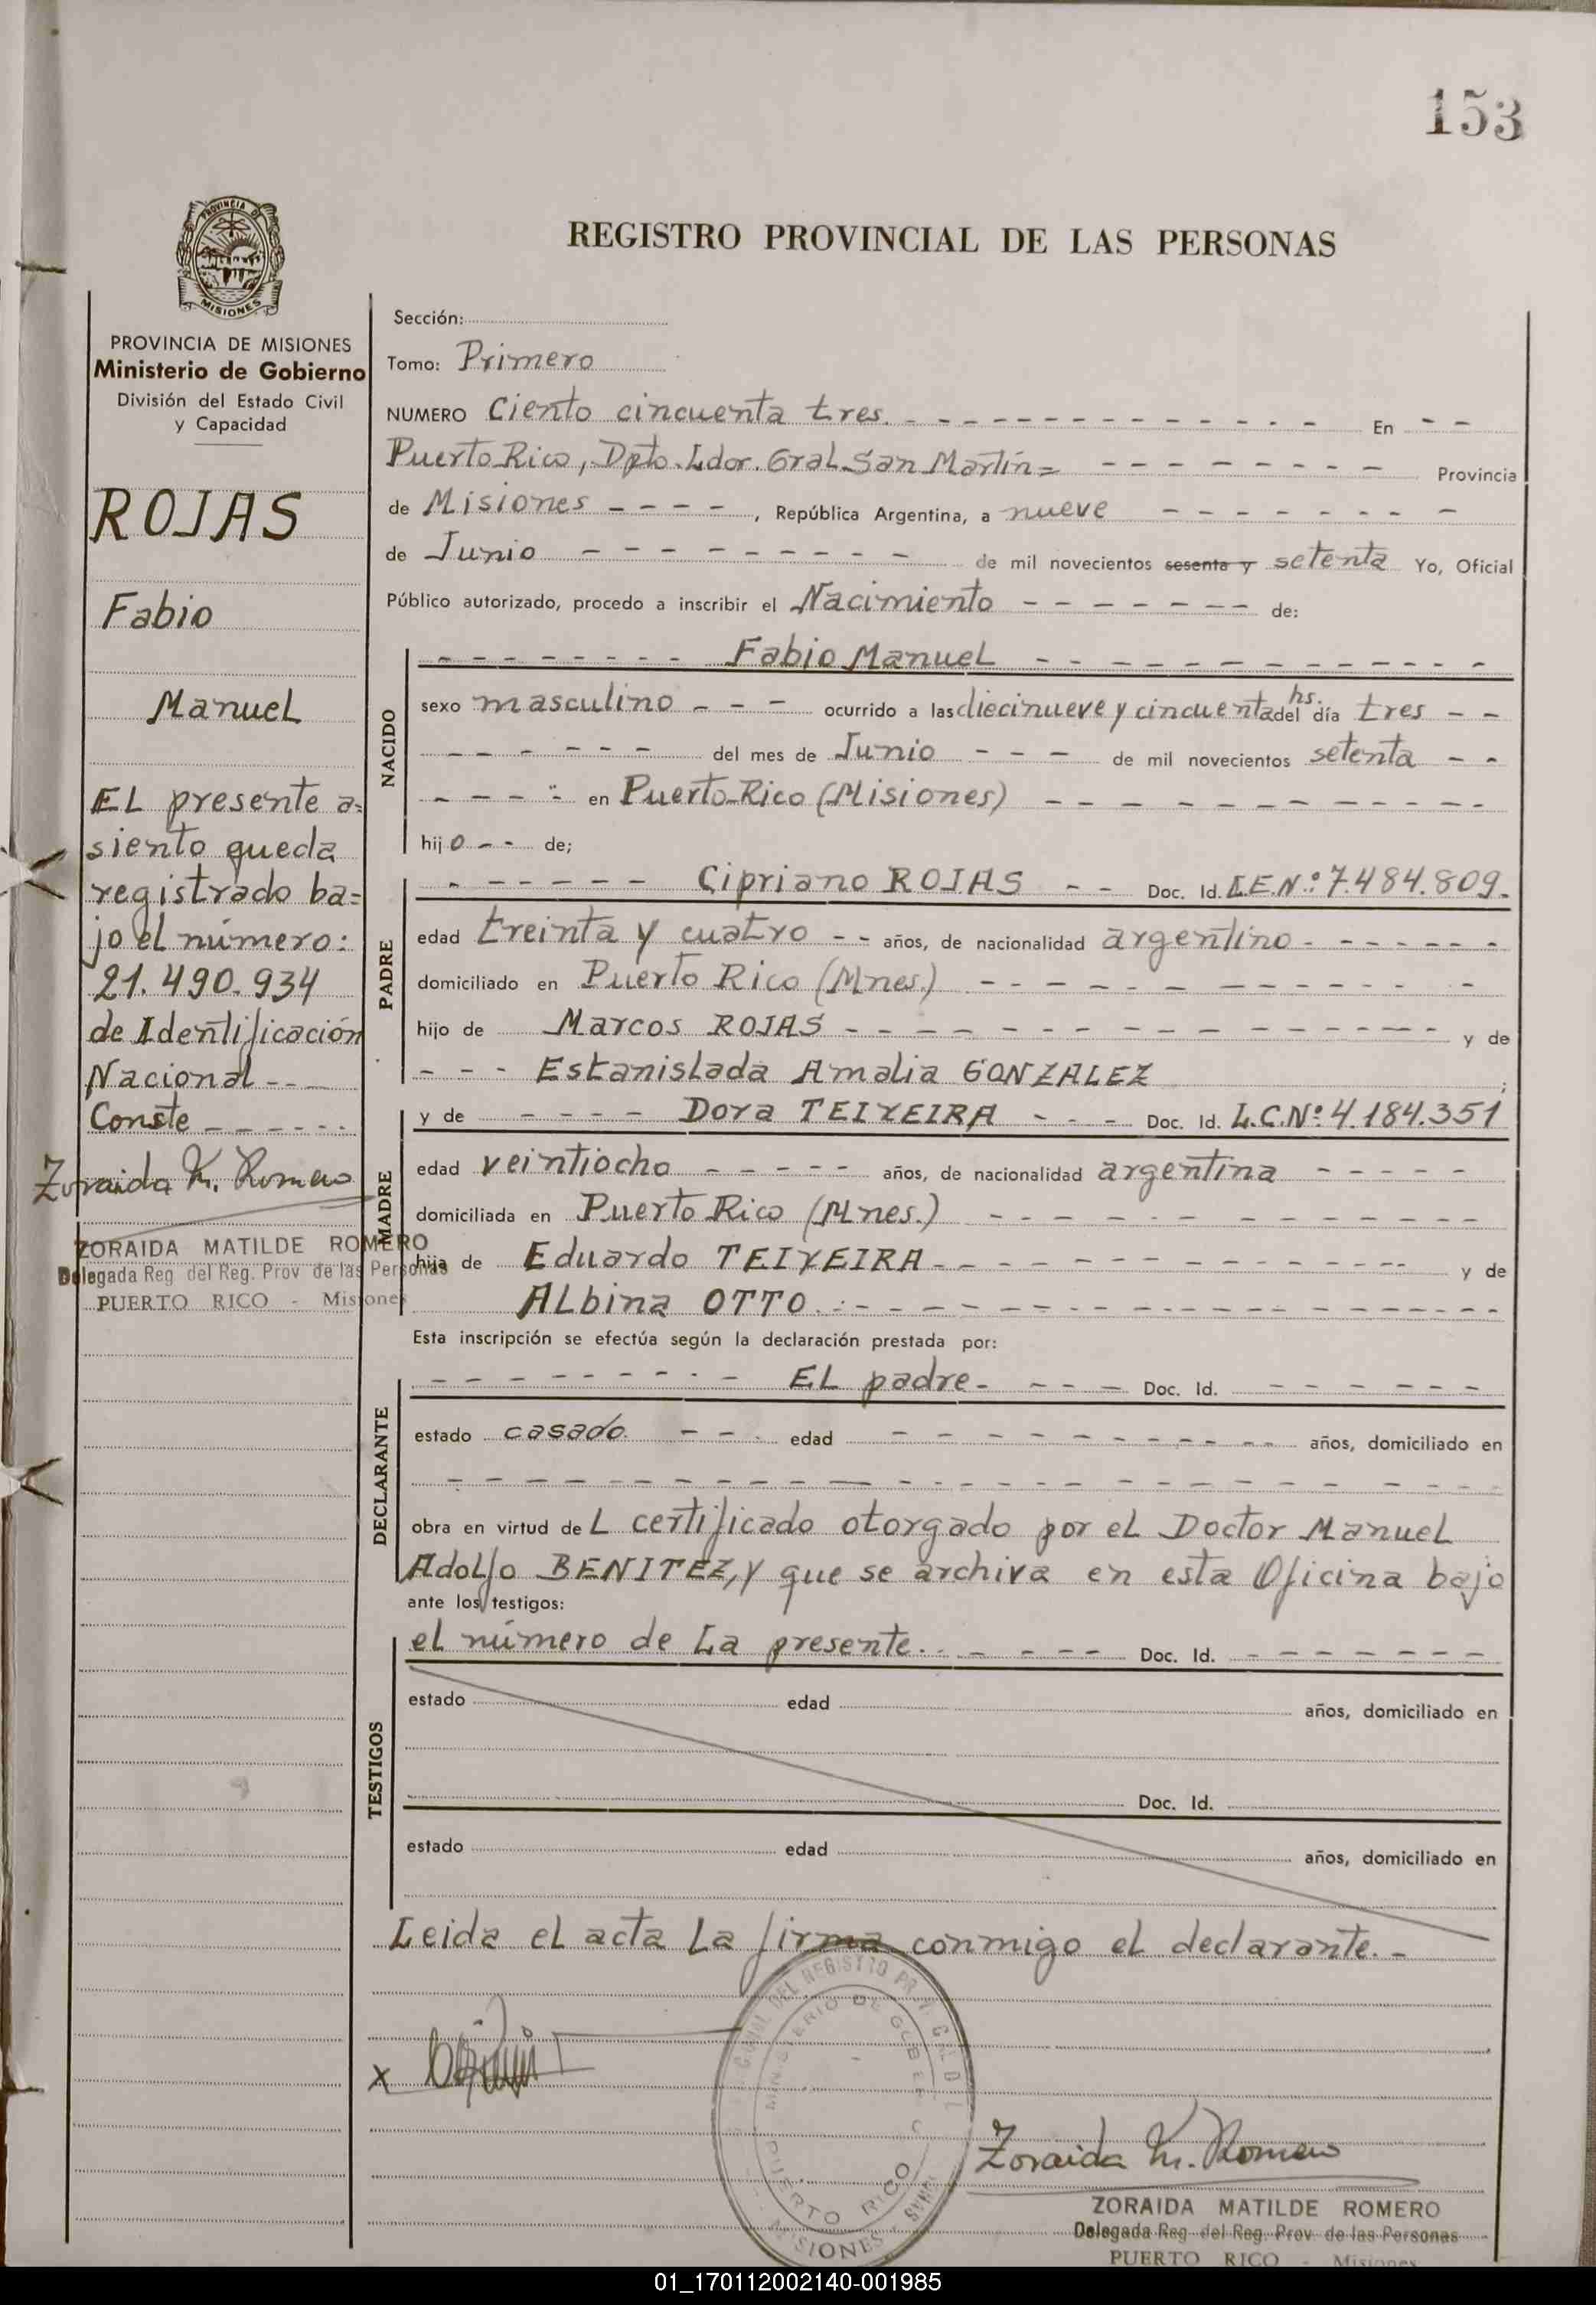 153
PROVINCIA DE
MISIONES
REGISTRO PROVINCIAL DE LAS PERSONAS
PROVINCIA DE MISIONES
Ministerio de Gobierno
División del Estado Civil
y Capacidad
ROJAS
Fabio
Manuel
EL presente a=
siento queda
registrado ba=
jo el número:
21.490.934
de Identificación
Nacional - - -
Conste - - - - - -
Zoraida M. Romero
ZORAIDA MATILDE ROMERO
Delegada Reg del Reg. Prov de las Personas
PUERTO RICO - Misiones
Sección:
Tomo: Primero
NUMERO Ciento cincuenta tres. - - - - - - - - - - - - - En - -
Puerto Rico, Dpto. Ldor. Gral. San Martín= - - - - - - - - Provincia
de Misiones - - - - , República Argentina, a nueve - - - - - - - -
de Junio - - - - - - - - - de mil novecientos sesenta y setenta Yo, Oficial
Público autorizado, procedo a inscribir el Nacimiento - - - - - - - de:
NACIDO
- - - - - - - - Fabio Manuel - - - - - - - - - - - - -
sexo masculino - - - ocurrido a las diecinueve y cincuenta hs. del día tres - -
- - - - - - - del mes de Junio - - - de mil novecientos setenta - -
- - - - en Puerto Rico (Misiones) - - - - - - - - - - - -
hijo - - de;
PADRE
- - - - - - Cipriano ROJAS - - Doc. Id. L.E.Nº: 7.484.809.
edad treinta y cuatro - - años, de nacionalidad argentino - - - - - - -
domiciliado en Puerto Rico (Mnes.) - - - - - - - - - - - -
hijo de Marcos ROJAS - - - - - - - - - - - - - - y de
- - - Estanislada Amalia GONZALEZ ;
MADRE
y de - - - - Dora TEIXEIRA - - - Doc. Id. L.C.Nº: 4.184.351
edad veintiocho - - - - - años, de nacionalidad argentina - - - - -
domiciliada en Puerto Rico (Mnes.) - - - - - - - - - - -
hija de Eduardo TEIXEIRA - - - - - - - - - - - - y de
ALbina OTTO. - - - - - - - - - - - - - - - - -
Esta inscripción se efectúa según la declaración prestada por:
DECLARANTE
- - - - - - - - - EL padre. - - - Doc. Id. - - - - - -
estado casado - - - edad - - - - - - - - - - - años, domiciliado en
- - - - - - - - - - - - - - - - - - - - - - - -
obra en virtud del certificado otorgado por el Doctor Manuel
Adolfo BENITEZ, y que se archiva en esta Oficina bajo
ante los testigos:
TESTIGOS
el número de la presente. - - - - - Doc. Id. - - - - - - -
estado edad años, domiciliado en
Doc. Id.
estado edad años, domiciliado en
Leida el acta la firma conmigo el declarante. -
x
MINISTERIO DE
PUERTO RICO
MISIONES
Zoraida M. Romero
ZORAIDA MATILDE ROMERO
Delegada Reg del Reg. Prov de las Personas
PUERTO RICO - Misiones
01_170112002140-001985